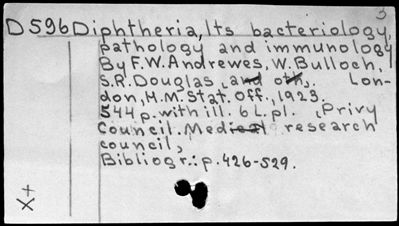 3
D596 Diphtheria, Its bacteriology,
pathology and immunology
By F.W. Andrewes, W. Bulloch,
S.R. Douglas, and oth,. Lon-
don, H.M. Stat. Off., 1923.
544 p. with ill. 6 L. pl. , Privy
Council. Medical research
council,
Bibliogr.: p. 426-529.
X+